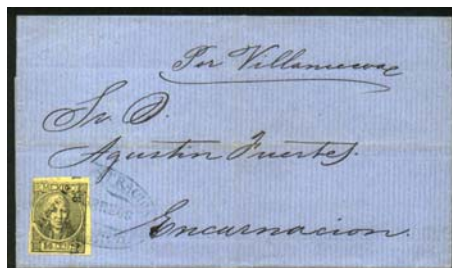 Per Villanueva
Sr. D.
Agustin Fuertes.
Encarnacion.